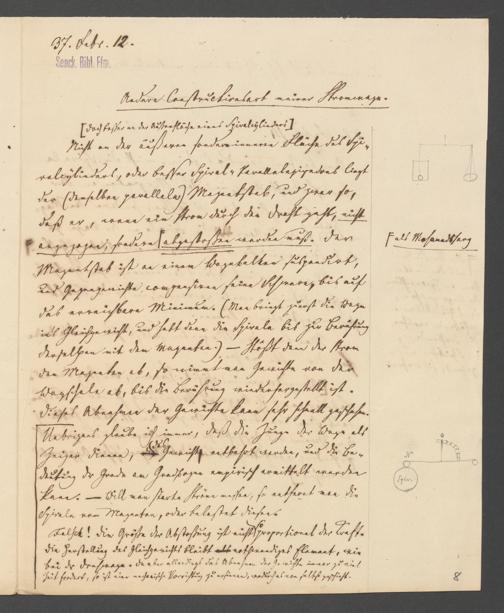 37. Febr. 12.
Senck. Bibl. Ffm.
Andere Constructionsart meiner Stromwage.
[doch besser an der Außenfläche eines Spiralcylinders]
Nicht an der äußeren sondern innern Fläche des Spi-
ralcylinders, oder besser Spiral-Parallelepipedons liegt
der (denselben parallele) Magnetstab, und zwar so,
daß er, wenn ein Strom durch den Draht geht, nicht
angezogen, sondern abgestoßen werden muß. Der
Magnetstab ist an einem Wagebalken suspendirt,
und Gegengewichte compensiren seine Schwere bis auf
das erreichbare Minimum. (Man bringt zuerst die Wage
ins Gleichgewicht, und hebt dann die Spirale bis zur Berührung
derselben mit dem Magneten.) — Stößt dann der Strom
den Magneten ab, so nimmt man Gewichte von der
Wagschale ab, bis die Berührung wiederhergestellt ist.
Dieses Abnehmen der Gewichte kann sehr schnell geschehen.
Uebrigens glaube ich immer, daß die Zunge der Wage als
Zeiger dienen, die Gewichte entbehrt werden, und die Be-
deutung der Grade am Gradbogen empirisch ermittelt werden
kann. — Will man starke Ströme messen, so entfernt man die
Spirale vom Magneten, oder belastet diesen.
Falsch! die Größe der Abstoßung ist nicht proportional der Kraft.
die Herstellung des Gleichgewichts bleibt nothwendiges Element, wie
bei der Drehwage. da aber allerdings das Abnehmen der Gewichte immer zu viel
Zeit fordert, so ist eine mechanische Vorrichtung zu ersinnen, wodurch es von selbst geschieht.
8